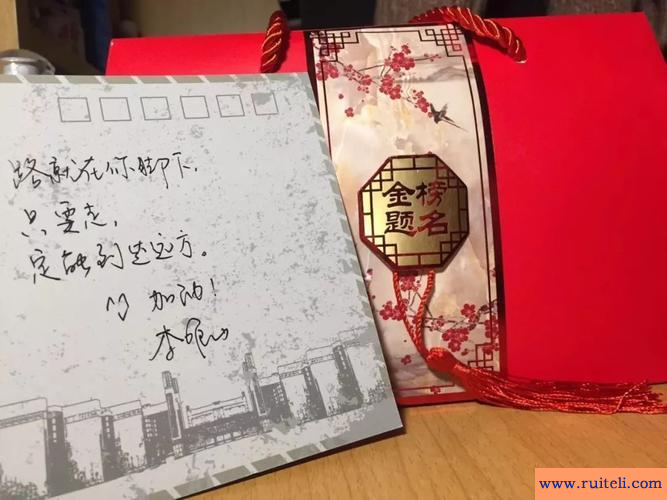 路就在你脚下,
只要走,
定能到达远方。
加油!
金榜
题名
www.ruiteli.com